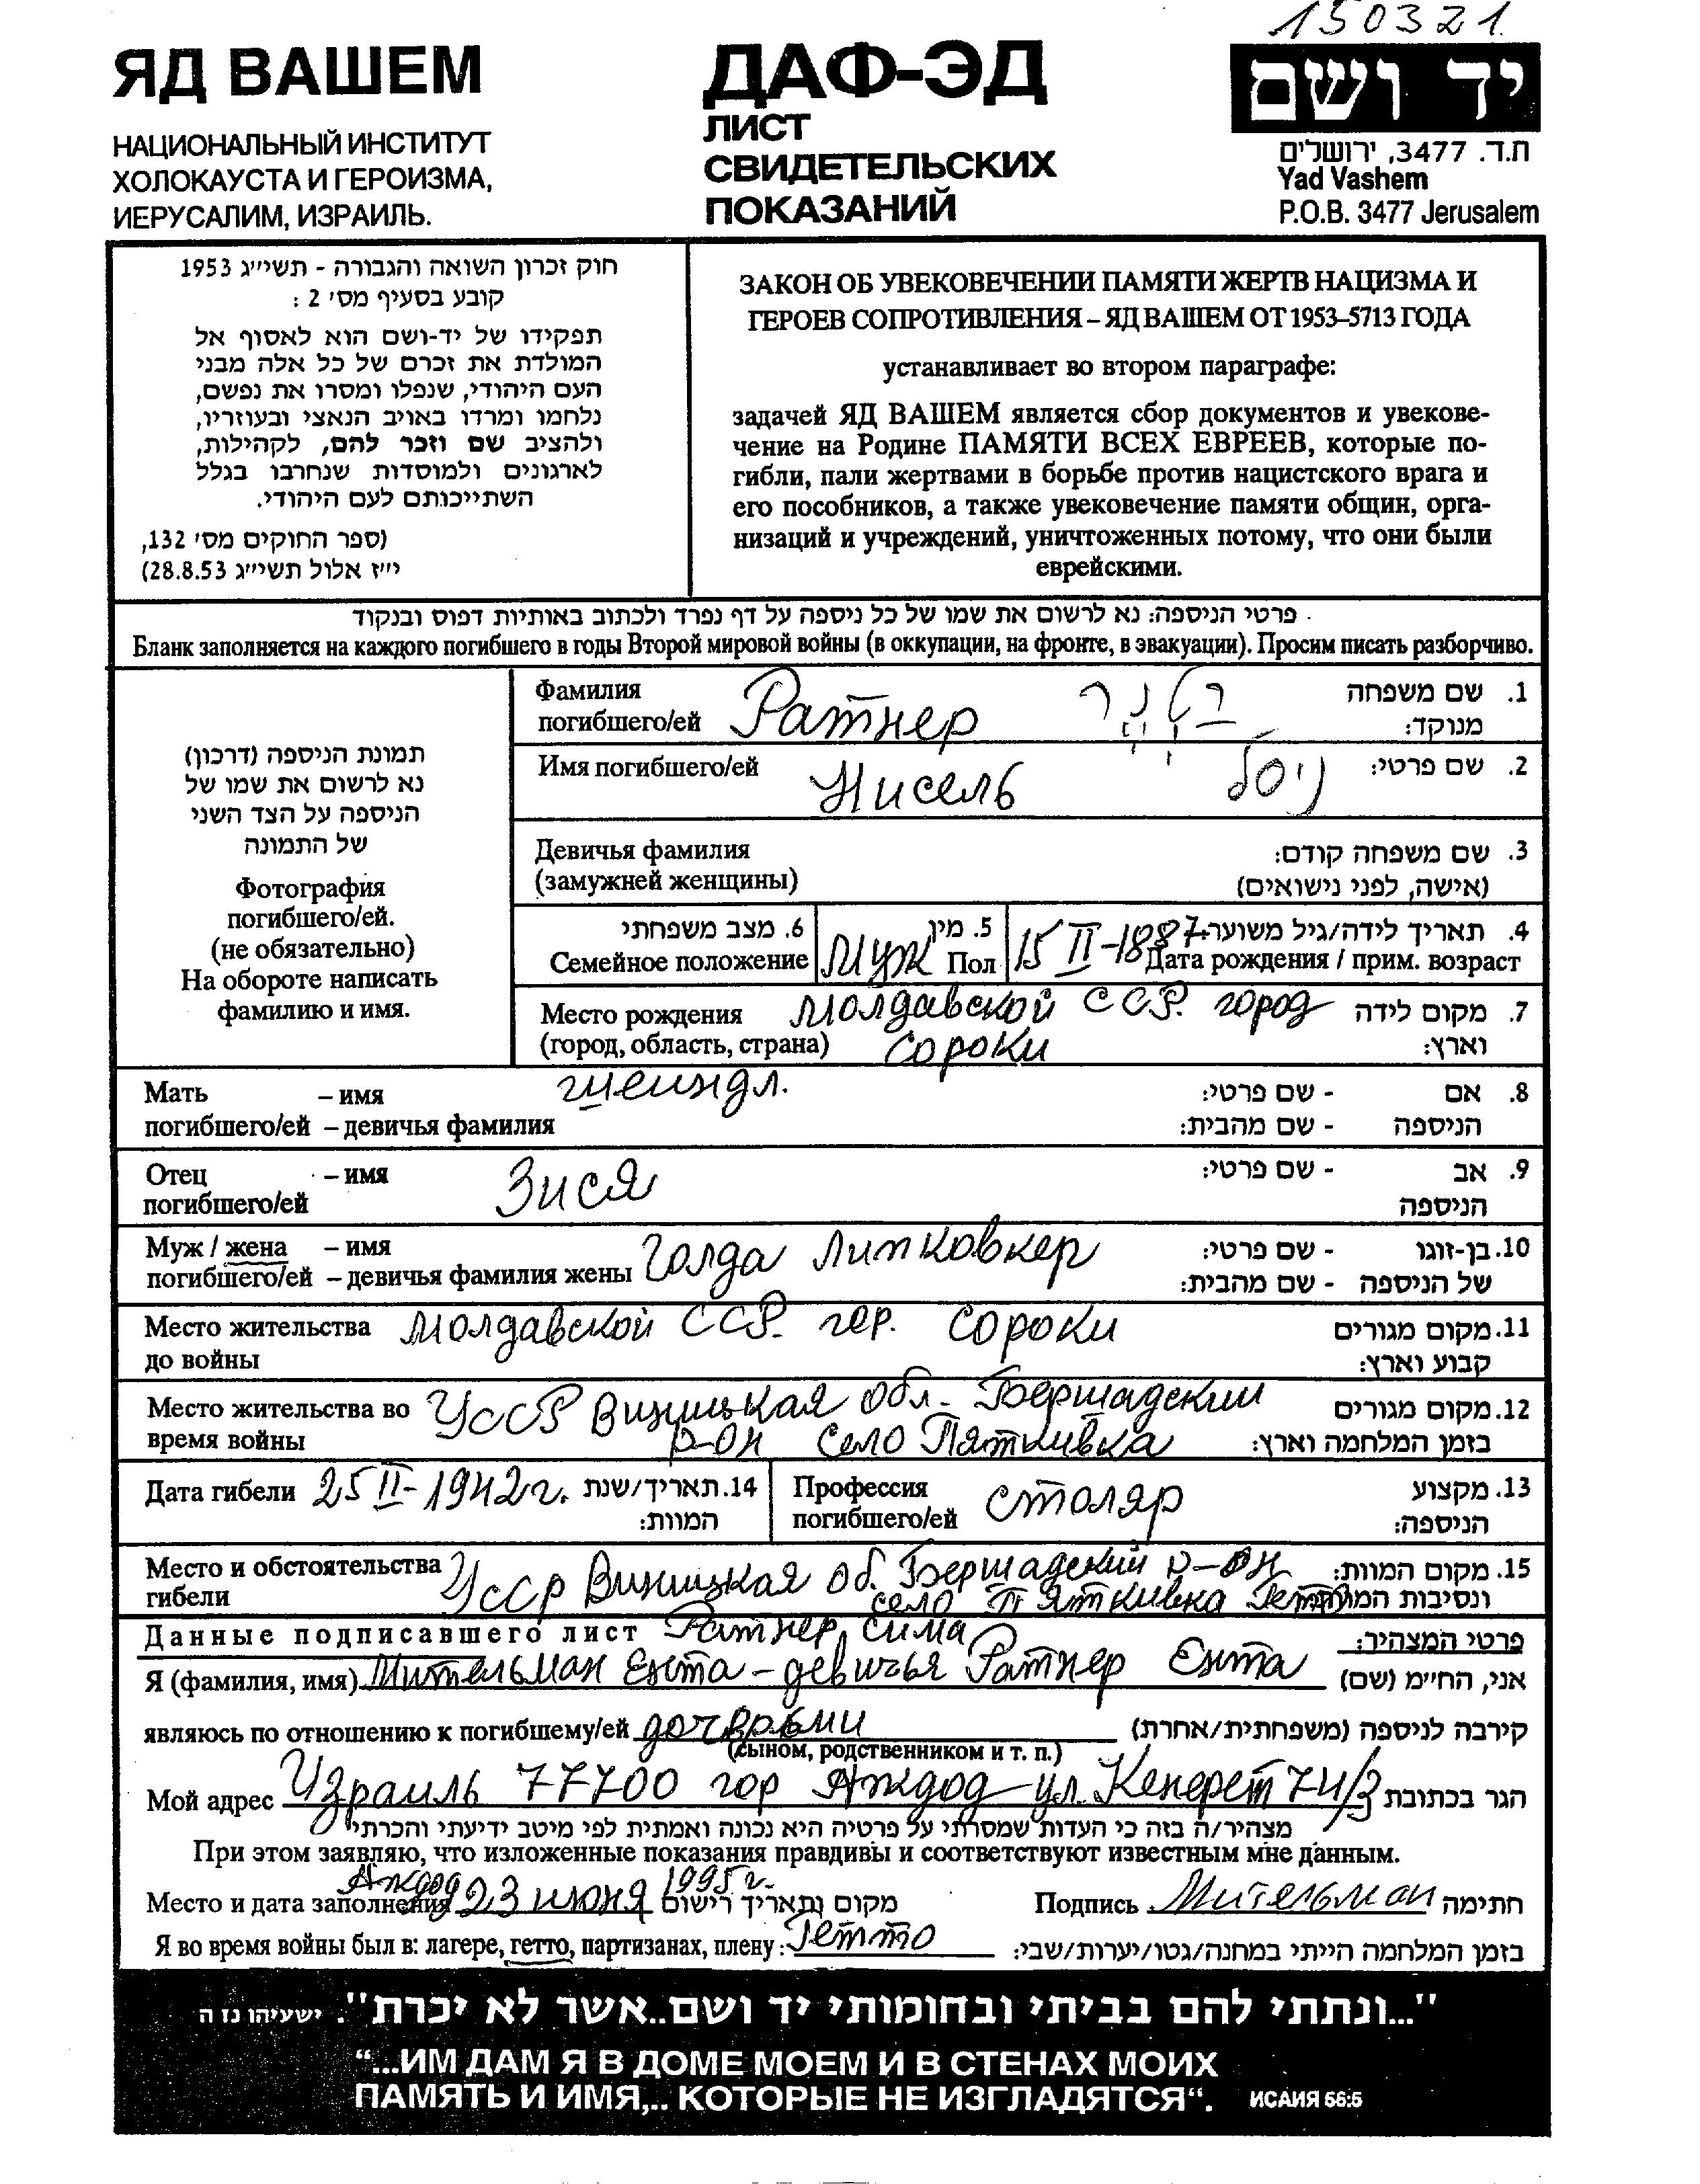 150321
ЯД ВАШЕМ
НАЦИОНАЛЬНЫЙ ИНСТИТУТ
ХОЛОКАУСТА И ГЕРОИЗМА,
ИЕРУСАЛИМ, ИЗРАИЛЬ.
ДАФ-ЭД
ЛИСТ
СВИДЕТЕЛЬСКИХ
ПОКАЗАНИЙ
יד ושם
ת.ד. 3477, ירושלים
Yad Vashem
P.O.B. 3477 Jerusalem
חוק זכרון השואה והגבורה - תשי״ג 1953
קובע בסעיף מס׳ 2 :
תפקידו של יד-ושם הוא לאסוף אל
המולדת את זכרם של כל אלה מבני
העם היהודי, שנפלו ומסרו את נפשם,
נלחמו ומרדו באויב הנאצי ובעוזריו,
ולהציב שם וזכר להם, לקהילות,
לארגונים ולמוסדות שנחרבו בגלל
השתייכותם לעם היהודי.
(ספר החוקים מס׳ 132,
י״ז אלול תשי״ג 28.8.53)
ЗАКОН ОБ УВЕКОВЕЧЕНИИ ПАМЯТИ ЖЕРТВ НАЦИЗМА И
ГЕРОЕВ СОПРОТИВЛЕНИЯ – ЯД ВАШЕМ ОТ 1953–5713 ГОДА
устанавливает во втором параграфе:
задачей ЯД ВАШЕМ является сбор документов и увекове-
чение на Родине ПАМЯТИ ВСЕХ ЕВРЕЕВ, которые по-
гибли, пали жертвами в борьбе против нацистского врага и
его пособников, а также увековечение памяти общин, орга-
низаций и учреждений, уничтоженных потому, что они были
еврейскими.
פרטי הניספה: נא לרשום את שמו של כל ניספה על דף נפרד ולכתוב באותיות דפוס ובנקוד
Бланк заполняется на каждого погибшего в годы Второй мировой войны (в оккупации, на фронте, в эвакуации). Просим писать разборчиво.
תמונת הניספה (דרכון)
נא לרשום את שמו של
הניספה על הצד השני
של התמונה
Фотография
погибшего/ей.
(не обязательно)
На обороте написать
фамилию и имя.
Фамилия
погибшего/ей Ратнер רטנר
1. שם משפחה
מנוקד:
Имя погибшего/ей Нисель ניסל 2. שם פרטי:
Девичья фамилия
(замужней женщины)
3. שם משפחה קודם:
(אישה, לפני נישואים)
6. מצב משפחתי
Семейное положение
5. מין
Муж Пол
4. תאריך לידה/גיל משוער
15 II-1887 Дата рождения / прим. возраст
Место рождения Молдавской ССР. город
(город, область, страна) Сороки
7. מקום לידה
וארץ:
Мать – имя Шеиндл.
погибшего/ей – девичья фамилия
8. אם - שם פרטי:
הניספה - שם מהבית:
Отец – имя Зися
погибшего/ей
9. אב - שם פרטי:
הניספה
Муж / жена – имя
погибшего/ей – девичья фамилия жены Голда Литковкер
10. בן-זוגו - שם פרטי:
של הניספה - שם מהבית:
Место жительства Молдавской ССР. гор. Сороки
до войны
11. מקום מגורים
קבוע וארץ:
Место жительства во УССР Виницкая обл. Бершадскии
время войны р-он село Пяткивка
12. מקום מגורים
בזמן המלחמה וארץ:
Дата гибели 25 II-1942 г.
14. תאריך/שנת
המוות:
Профессия
погибшего/ей столяр
13. מקצוע
הניספה:
Место и обстоятельства УССР Виницкая об. Бершадский р-он
гибели село Пяткивка Гетто
15. מקום המוות:
ונסיבות המוות
Данные подписавшего лист Ратнер Сима פרטי המצהיר:
Я (фамилия, имя) Мительман Ента – девичья Ратнер Ента אני, הח״מ (שם)
являюсь по отношению к погибшему/ей дочерьми קירבה לניספה (משפחתית/אחרת)
(сыном, родственником и т. п.)
Мой адрес Израиль 77700 гор Ашдод ул. Кенерет 74/3 הגר בכתובת
מצהיר/ה בזה כי העדות שמסרתי על פרטיה היא נכונה ואמתית לפי מיטב ידיעתי והכרתי
При этом заявляю, что изложенные показания правдивы и соответствуют известным мне данным.
Место и дата заполнения Ашдод 23 июня 1995 г. מקום ותאריך רישום
Подпись Мительман חתימה
Я во время войны был в: лагере, гетто, партизанах, плену: Гетто בזמן המלחמה הייתי במחנה/גטו/יערות/שבי:
"...ונתתי להם בביתי ובחומותי יד ושם..אשר לא יכרת". ישעיהו נז ה
“...ИМ ДАМ Я В ДОМЕ МОЕМ И В СТЕНАХ МОИХ
ПАМЯТЬ И ИМЯ,.. КОТОРЫЕ НЕ ИЗГЛАДЯТСЯ“. ИСАИЯ 56:5